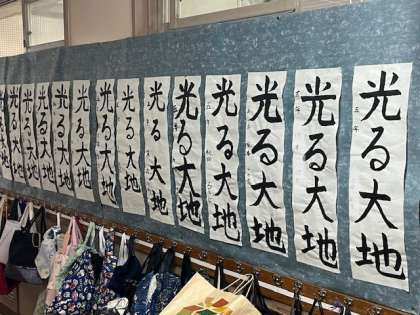 光る大地
三年
光る大地
光る大地
光る大地
光る大地
光る大地
光る大地
光る大地
光る大地
光る大地
光る大地
光る大地
光る大地